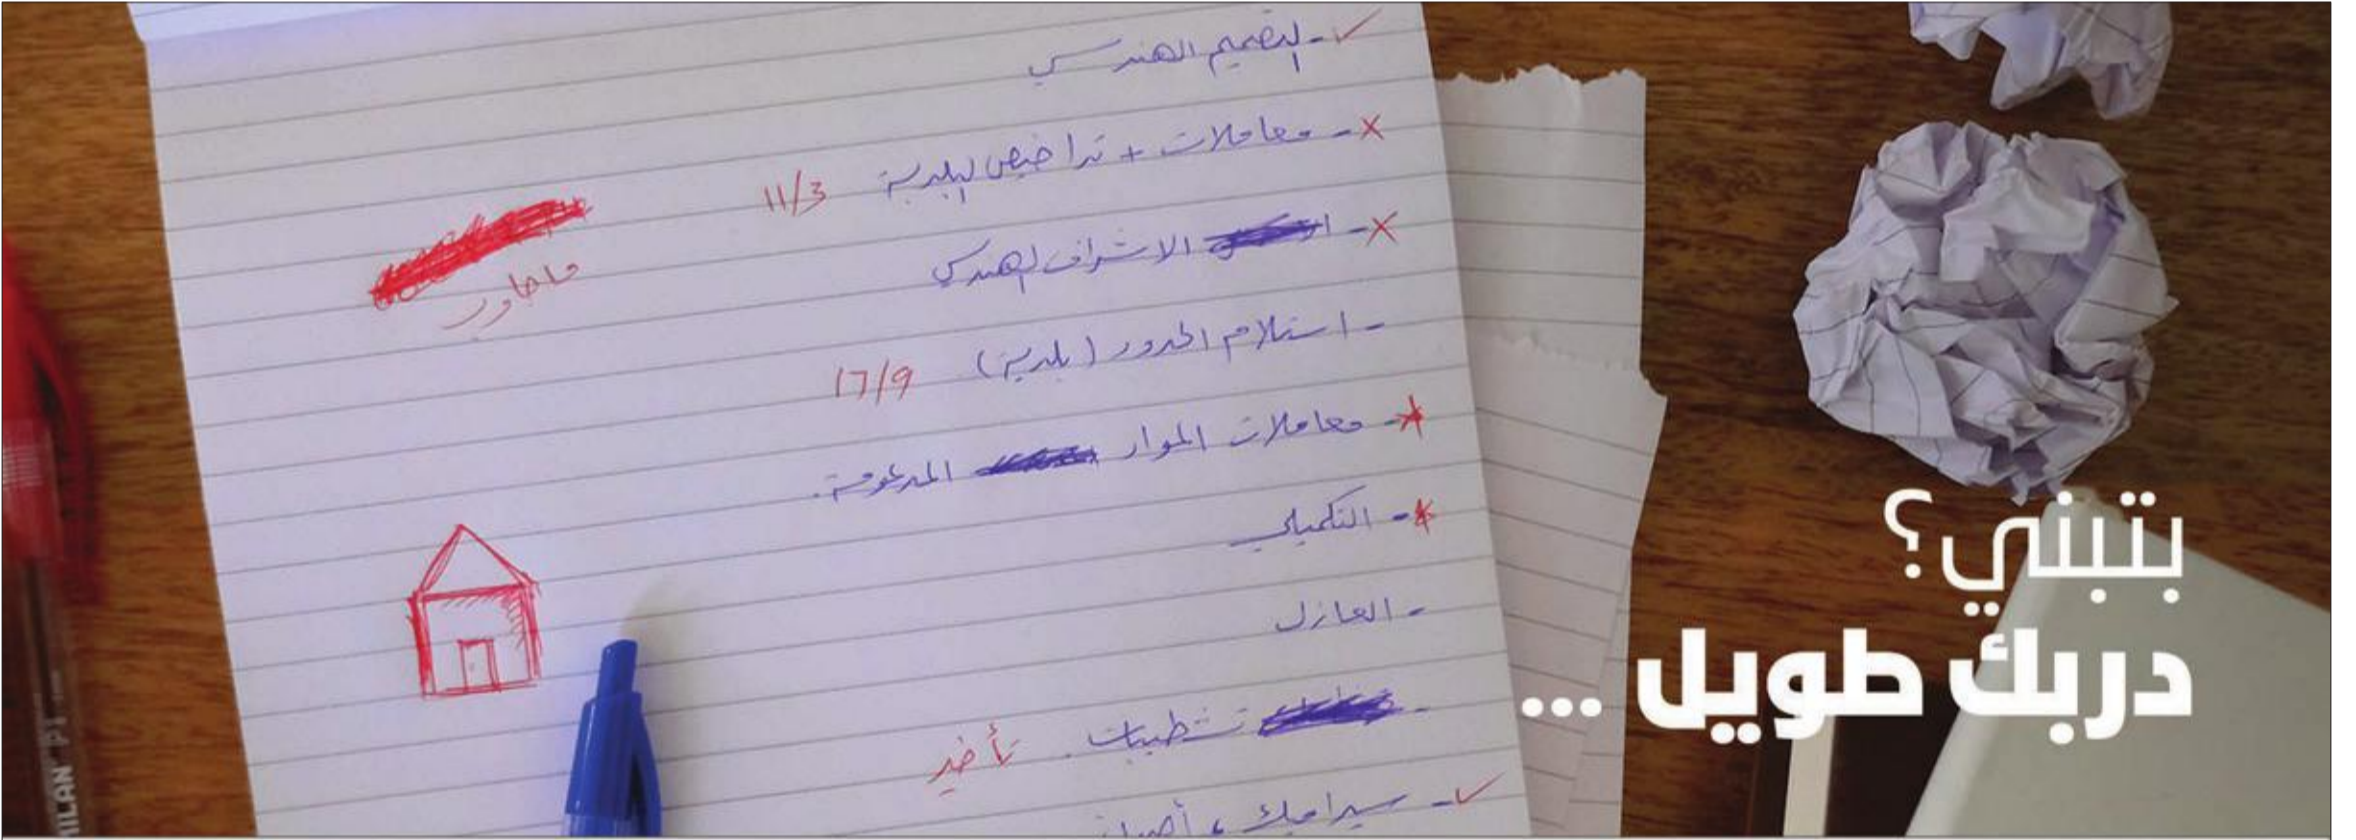 ✓- التصميم الهندسي
×- معاملات + تراخيص البلدية 11/3
×- الاشراف الهندسي
ماجاوب
- استلام الحدود (بلدية) 17/9
- معاملات المواد المدعومة.
- التكميلي
- العازل
- تشطيبات. تأخير
✓- سيراميك ،
بتبني؟
دربك طويل ...
MILAN P1